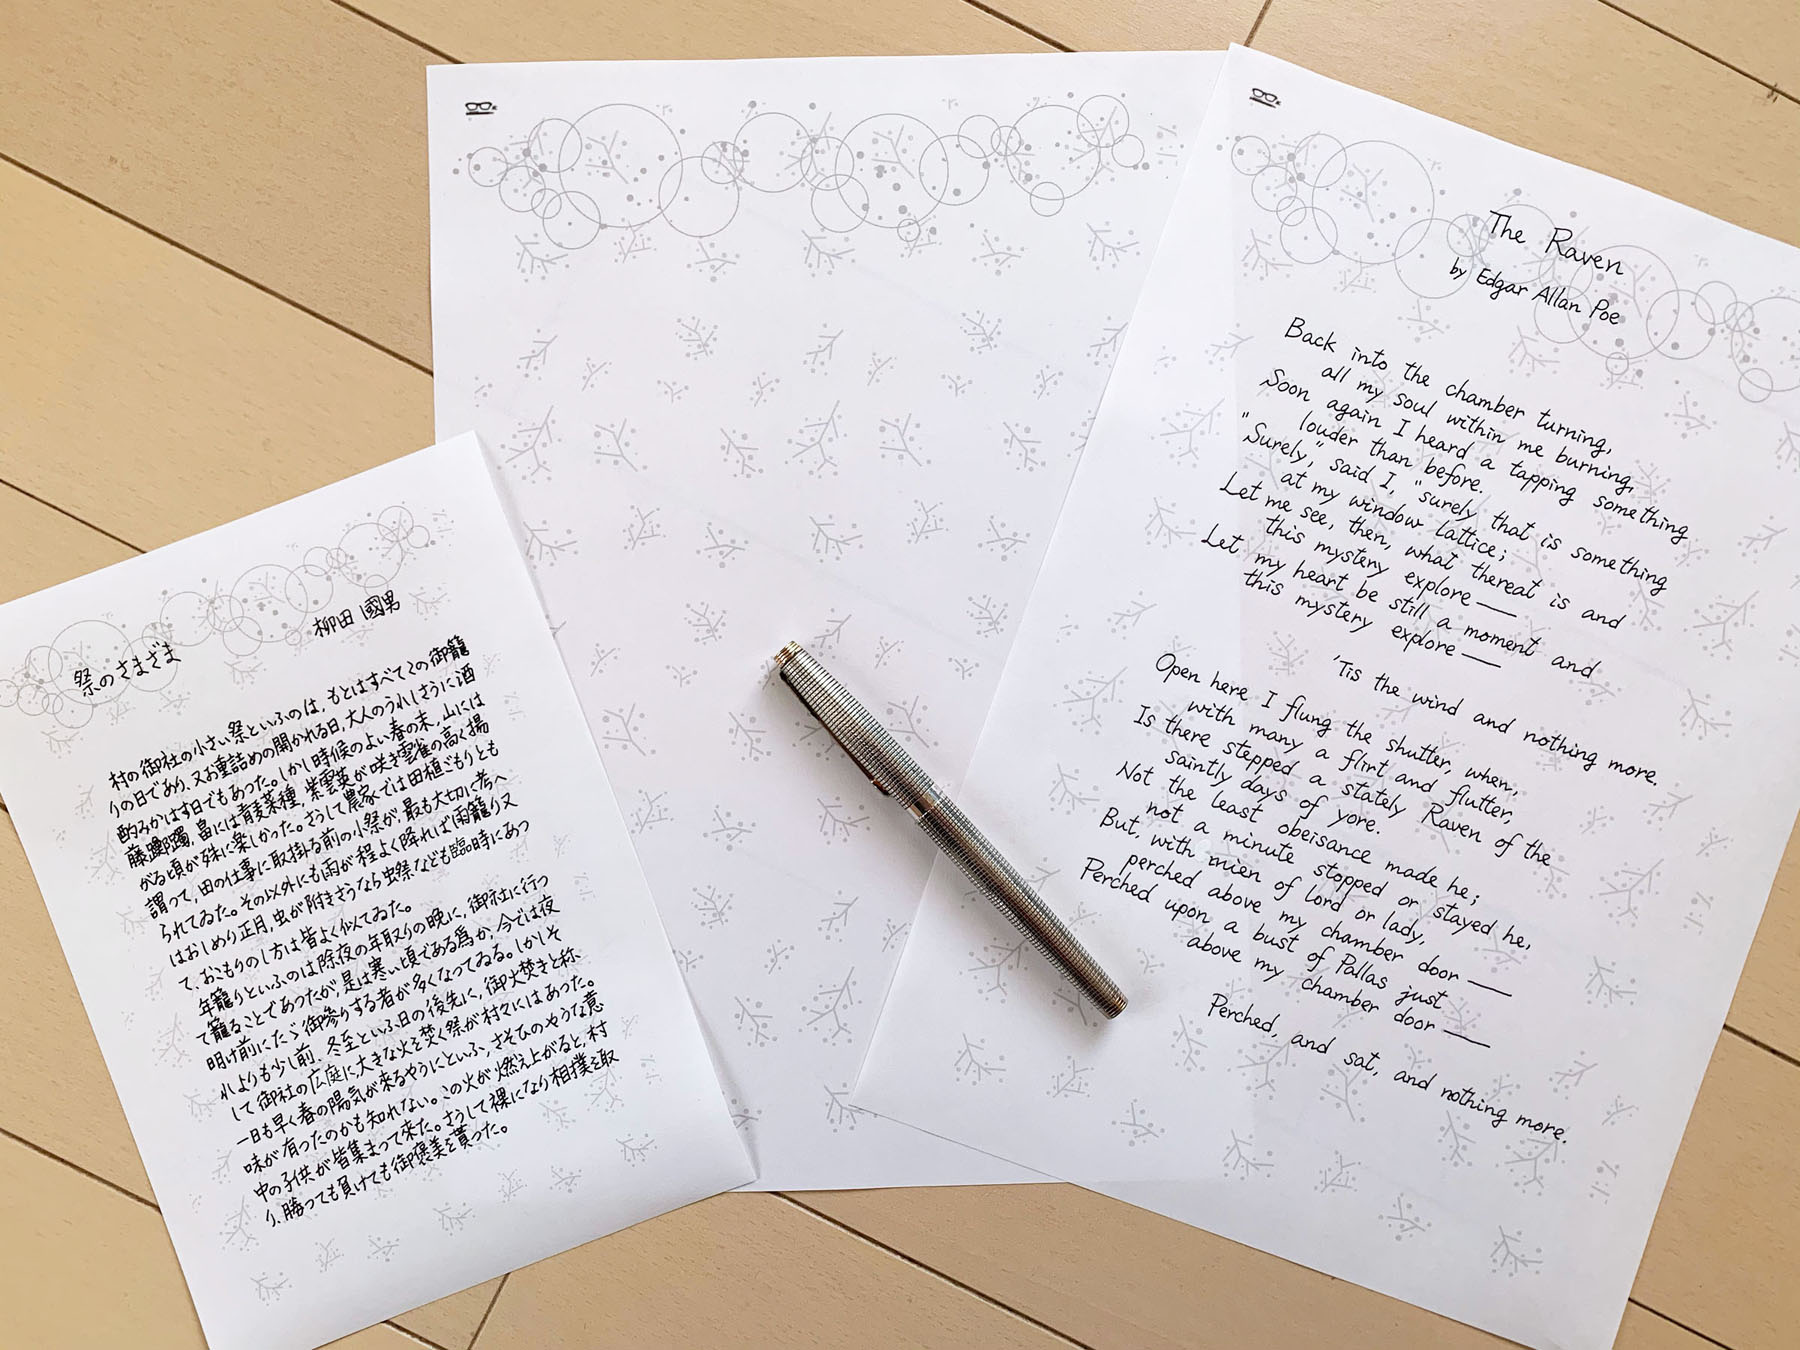 祭のさまざま
柳田 國男
村の御社の小さい祭といふのは、もとはすべてこの御籠
りの日であり、又お重詰めの開かれる日、大人のうれしさうに酒
酌みかはす日でもあった。しかし時候のよい春の末、山には
藤躑躅、畠には青麦菜種、紫雲英が咲き雲雀の高く揚
がる頃が殊に楽しかった。さうして農家では田植ごもりとも
謂って、田の仕事に取掛る前の小祭が、最も大切に考へ
られてゐた。その以外にも雨が程よく降れば雨籠り又
はおしめり正月、虫が附きさうなら虫祭なども臨時にあっ
て、おこもりのし方は皆よく似てゐた。
年籠りといふのは除夜の年取りの晩に、御社に行っ
て籠ることであったが、是は寒い頃である為か、今では夜
明け前にたゞ御参りする者が多くなってゐる。しかしそ
れよりも少し前、冬至といふ日の後先に、御火焚きと称
して御社の広庭に、大きな火を焚く祭が村々にはあった。
一日も早く春の陽気が来るやうにといふ、さそひのやうな意
味が有ったのかも知れない。この火が燃え上がると、村
中の子供が皆集まって来た。さうして裸になり相撲を取
り、勝っても負けても御褒美を貰った。
The Raven
by Edgar Allan Poe
Back into the chamber turning,
all my soul within me burning,
Soon again I heard a tapping something
louder than before.
"Surely," said I, "surely that is something
at my window lattice;
Let me see, then, what thereat is and
this mystery explore——
Let my heart be still a moment and
this mystery explore——
'Tis the wind and nothing more.
Open here I flung the shutter, when,
with many a flirt and flutter,
Is there stepped a stately Raven of the
saintly days of yore.
Not the least obeisance made he;
not a minute stopped or stayed he,
But, with mien of lord or lady,
perched above my chamber door——
Perched upon a bust of Pallas just
above my chamber door——
Perched, and sat, and nothing more.